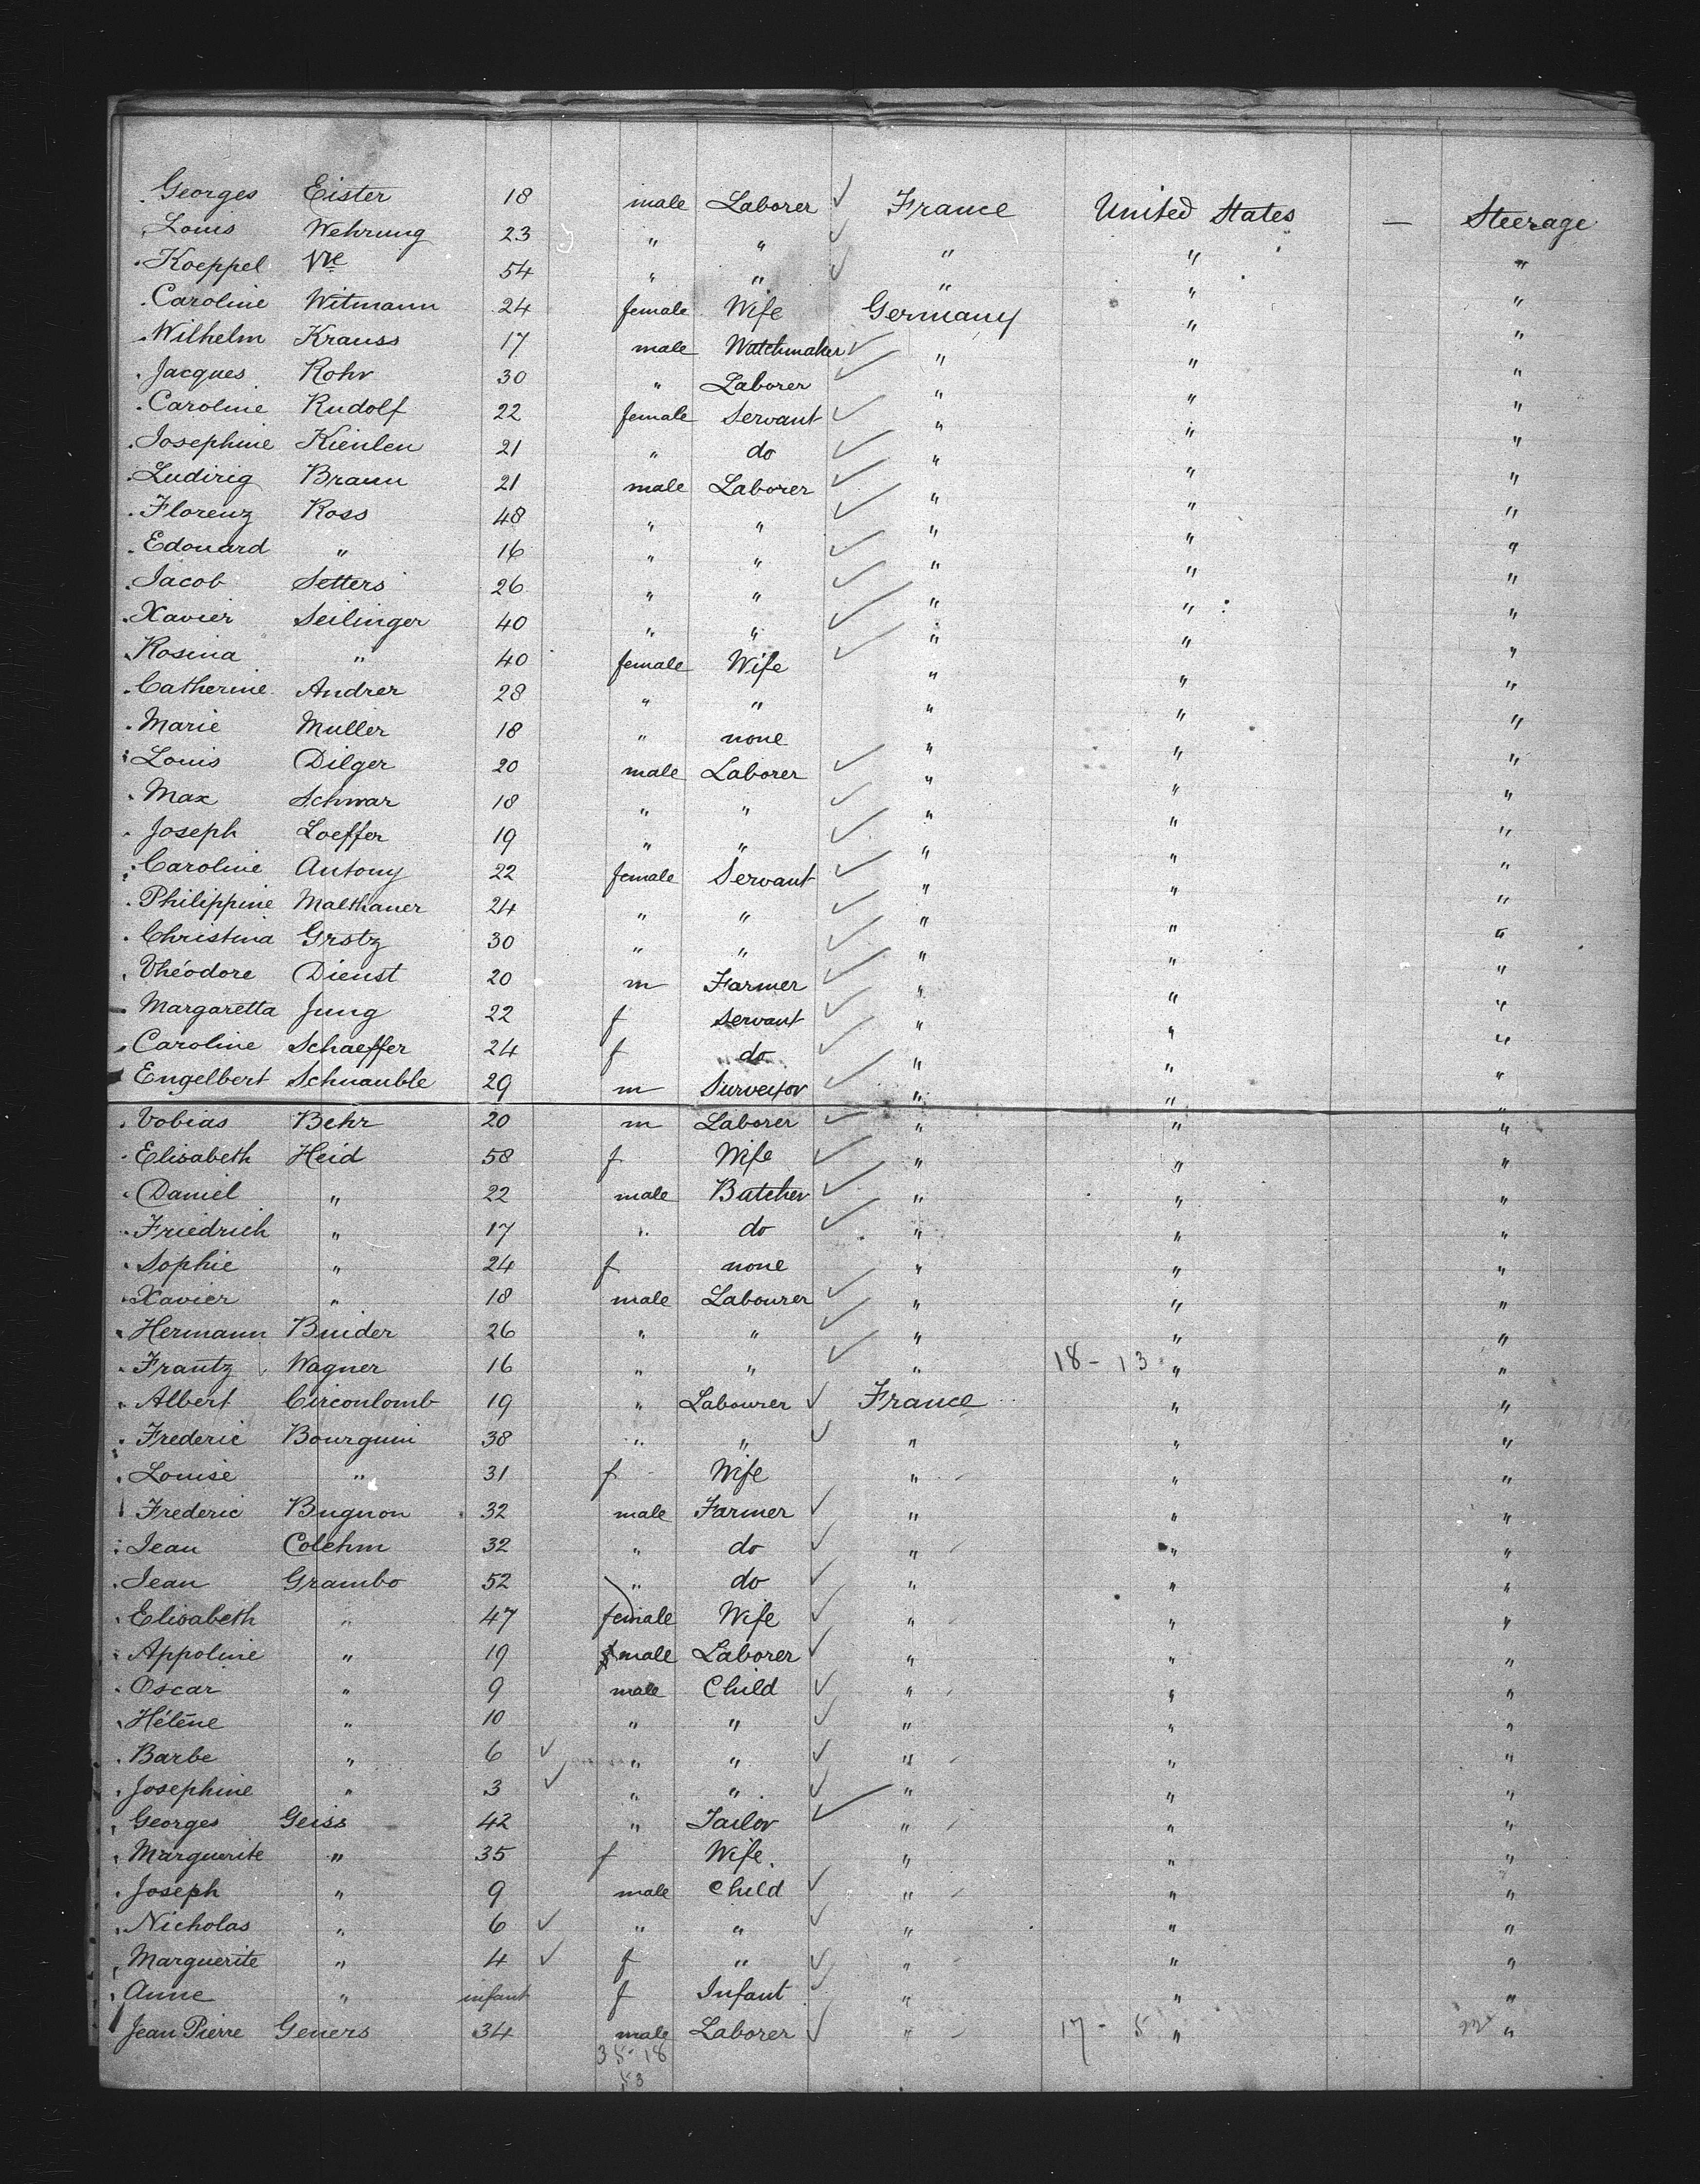 Georges Eister 18 male Laborer ✓ France United States — Steerage
Louis Wehrung 23 " " ✓ " " "
Koeppel Vve 54 " " ✓ " " "
Caroline Witmann 24 female Wife Germany " "
Wilhelm Krauss 17 male Watchmaker ✓ " " "
Jacques Rohr 30 " Laborer ✓ " " "
Caroline Rudolf 22 female Servant ✓ " " "
Josephine Kienlen 21 " do ✓ " " "
Ludirig Braun 21 male Laborer ✓ " " "
Florenz Ross 48 " " ✓ " " "
Edouard " 16 " " ✓ " " "
Jacob Setters 26 " " ✓ " " "
Xavier Seilinger 40 " " ✓ " " "
Rosina " 40 female Wife ✓ " " "
Catherine Andrer 28 " " " " "
Marie Muller 18 " none " " "
Louis Dilger 20 male Laborer ✓ " " "
Max Schwar 18 " " ✓ " " "
Joseph Loeffer 19 " " ✓ " " "
Caroline Antony 22 female Servant ✓ " " "
Philippine Malthaner 24 " " ✓ " " "
Christina Grstz 30 " " ✓ " " "
Théodore Dienst 20 m Farmer ✓ " " "
Margaretta Jung 22 f Servant ✓ " " "
Caroline Schaeffer 24 f do ✓ " " "
Engelbert Schnauble 29 m Surveyor ✓ " " "
Tobias Behr 20 m Laborer ✓ " " "
Elisabeth Heid 58 f Wife ✓ " " "
Daniel " 22 male Butcher ✓ " " "
Friedrich " 17 " do ✓ " " "
Sophie " 24 f none " " "
Xavier " 18 male Labourer ✓ " " "
Hermann Buider 26 " " ✓ " " "
Frantz Wagner 16 " " ✓ " 18-13 " "
Albert Circoulomb 19 " Labourer ✓ France " "
Frederic Bourguin 38 " " ✓ " " "
Louise " 31 f Wife " " "
Frederic Bugnon 32 male Farmer ✓ " " "
Jean Colehm 32 " do ✓ " " "
Jean Grambo 52 " do ✓ " " "
Elisabeth " 47 female Wife ✓ " " "
Appoline " 19 male Laborer ✓ " " "
Oscar " 9 male Child ✓ " " "
Hélène " 10 " " ✓ " " "
Barbe " 6 ✓ " " ✓ " " "
Josephine " 3 ✓ " " ✓ " " "
Georges Geiss 42 " Tailor ✓ " " "
Marguerite " 35 f Wife " " "
Joseph " 9 male Child ✓ " " "
Nicholas " 6 ✓ " " ✓ " " "
Marguerite " 4 ✓ f " ✓ " " "
Anne " infant f Infant ✓ " " "
Jean Pierre Geners 34 male Laborer ✓ " 17-5 " "
35-18
53